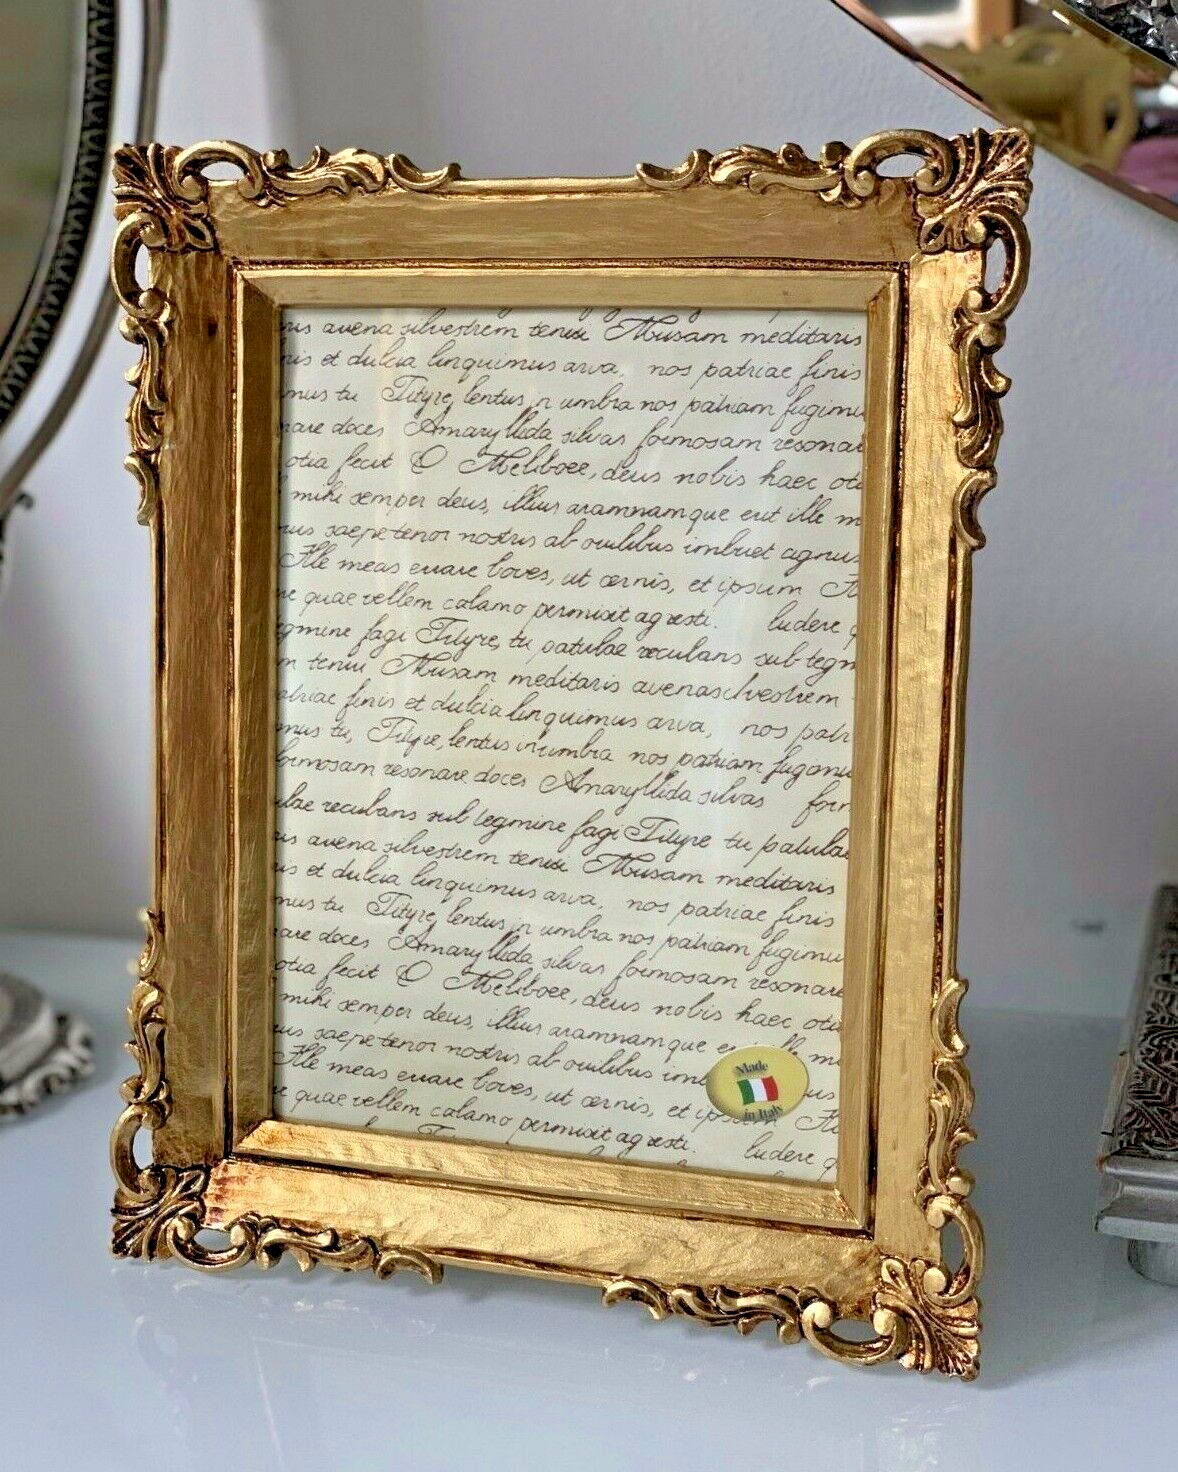 ris avena silvestrem tenui Musam meditaris
nis et dulcia linquimus arva, nos patriae finis
mus tu Tityre, lentus in umbra nos patriam fugimu
nare doces Amaryllida silvas formosam resonar
otia fecit O Meliboee, deus nobis haec oti
mihi semper deus, illius aramnamque erit ille m
rus saepe tenor nostris ab ouilibus imbuet agnus
Ille meas errare boves, ut cernis, et ipsum
re quae vellem calamo permisit agresti. ludere q
egmine fagi Tityre, tu patulae recubans sub tegm
m tenui Musam meditaris avenasilvestrem
atriae finis et dulcia linquimus arva, nos patr
mus tu, Tityre, lentus in umbra nos patriam fugimu
formosam resonare doces Amaryllida silvas form
ulae recubans sub tegmine fagi Tityre tu patulae
ris avena silvestrem tenui Musam meditaris
is et dulcia linquimus arva, nos patriae finis
mus tu Tityre, lentus in umbra nos patriam fugimu
nare doces Amaryllida silvas formosam resonare
otia fecit O Meliboee, deus nobis haec oti
mihi semper deus, illius aramnamque ille m
rus saepe tenor nostris ab ouilibus imb us
Ille meas errare boves, ut cernis, et ipsum
re quae vellem calamo permisit agresti. ludere q
Made
in Italy